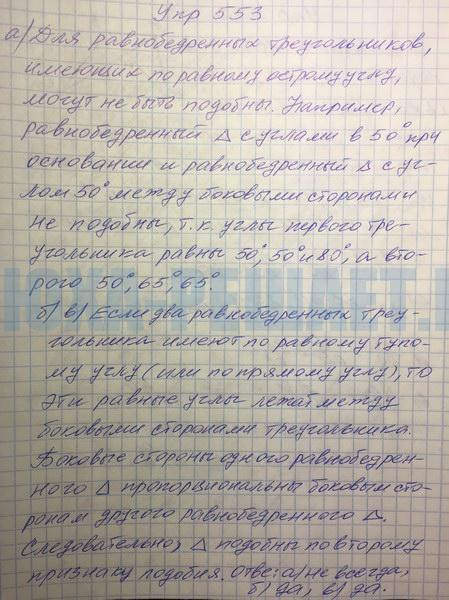 Упр 553
а) Для равнобедренных треугольников,
имеющих по равному острому углу,
могут не быть подобны. Например,
равнобедренный △ с углами в 50° при
основании и равнобедренный △ с уг-
лом 50° между боковыми сторонами
не подобны, т.к углы первого тре-
угольника равны 50°, 50° и 80°, а вто-
рого 50°, 65°, 65°.
б) в) Если два равнобедренных треу-
гольника имеют по равному тупо-
му углу (или по прямому углу), то
эти равные углы лежат между
боковыми сторонами треугольника.
Боковые стороны одного равнобедрен-
ного △ пропорциональны боковым сто-
ронам другого равнобедренного △.
Следовательно, △ подобны по второму
признаку подобия. Ответ: а) не всегда,
б) да, в) да.